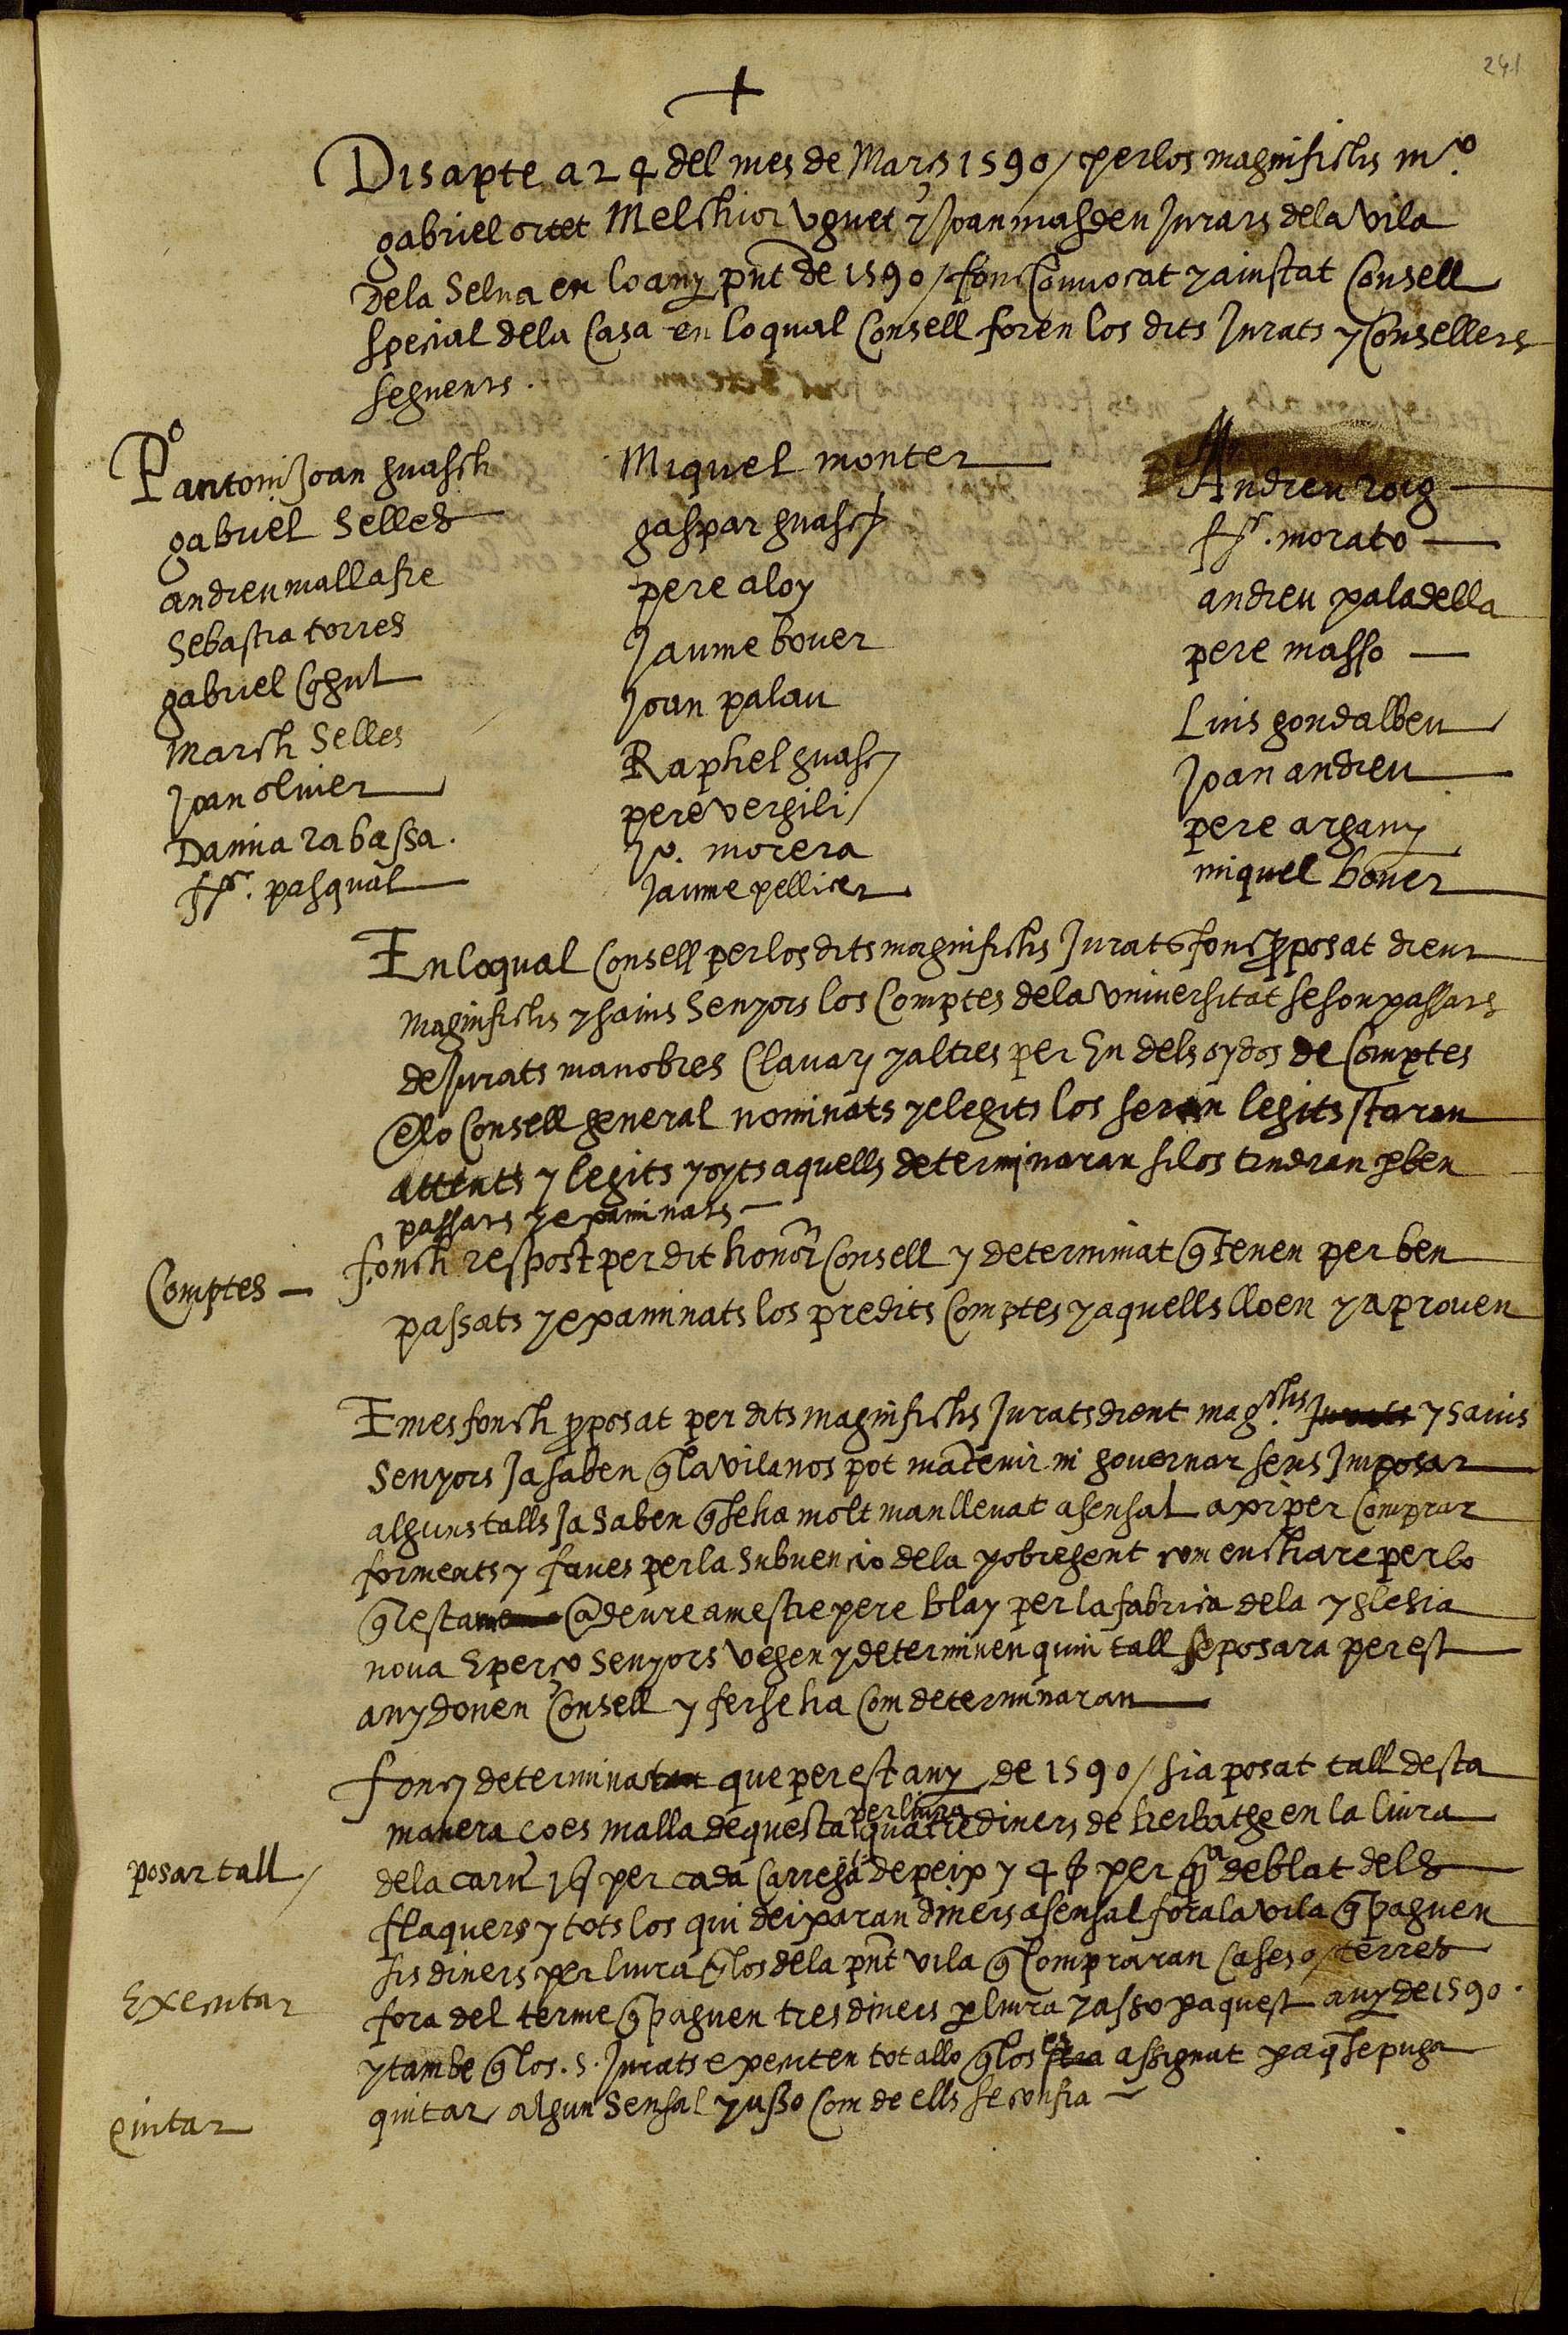 241
Disapte a 24 del mes de Març 1590 / per los magnifichs mº.
gabriel ortet Melchior Vguet y Joan masdeu Jurats dela Vila
dela Selua en lo any pnt de 1590 / fonc Conuocat y aiustat Consell
spenial dela Casa en loqual Consell foren los dits Jurats y Consellers
seguents.
Pº antoni Joan guasch
gabriel Selles
andreu mallafre
Sebastia torres
gabriel Cogul
March Selles
Joan oliuer
Damia rabassa.
ffr. pasqual
Miquel monter
gaspar guasch
pere aloy
Jaume bouer
Joan palau
Raphel guasch
pere vergili /
Jo. morera
Jaume pellicer
Andreu roig
ffr. morato
andreu paladella
pere masso
Luis gondalbeu
Joan andreu
pere argany
miquel bouer
En loqual Consell per los dits magnifichs Jurats fonc pposat dient
magnifichs y sauis Senyors los Comptes dela Vniuersitat se son passats
de Jurats manobres Clauary y altres per hu dels oydos de Comptes
@ lo Consell general nominats y elegits los seran legits staran
attents y legits y oyts aquells determinaran si los tindran p ben
passats y examinats
Comptes
fonch respost per dit honor Consell y determinat q tenen per ben
passats y examinats los predits Comptes y aquells lloen y aprouen
E mes fonch pposat per dits magnifichs Jurats dient magchs Jurats y sauis
Senyors Ja saben q la vila nos pot mantenir ni gouernar sens Imposar
alguns talls Ja Saben q se ha molt manlleuat a sensal axi per Comprar
forments y faues per la subuencio dela pobre gent com enchare per lo
q lesta @ deure a mestre pere blay per la fabrica dela ysglesia
noua E perço Senyors vegen y determinen quin tall se posara per est
any donen Consell y ferse ha Com determinaran
fonch determinat que per est any de 1590 / sia posat tall desta
manera ço es malla de questa per liura quatre diners de herbatge en la liura
posar tall /
dela carn 1 s per cada Carrega de peix y 4 s per q de blat dels
flaquers y tots los qui deixaran diners a sensal fora la vila q paguen
sis diners per liura q los dela pnt vila q Compraran Cases o terres
Executar
fora del terme q paguen tres diners p liura y asso p aquest any de 1590.
y tambe q los .S. Jurats executen tot allo q los es assignat p aq se puga
quitar algun Sensal y asso Com de ells se confia
quitar